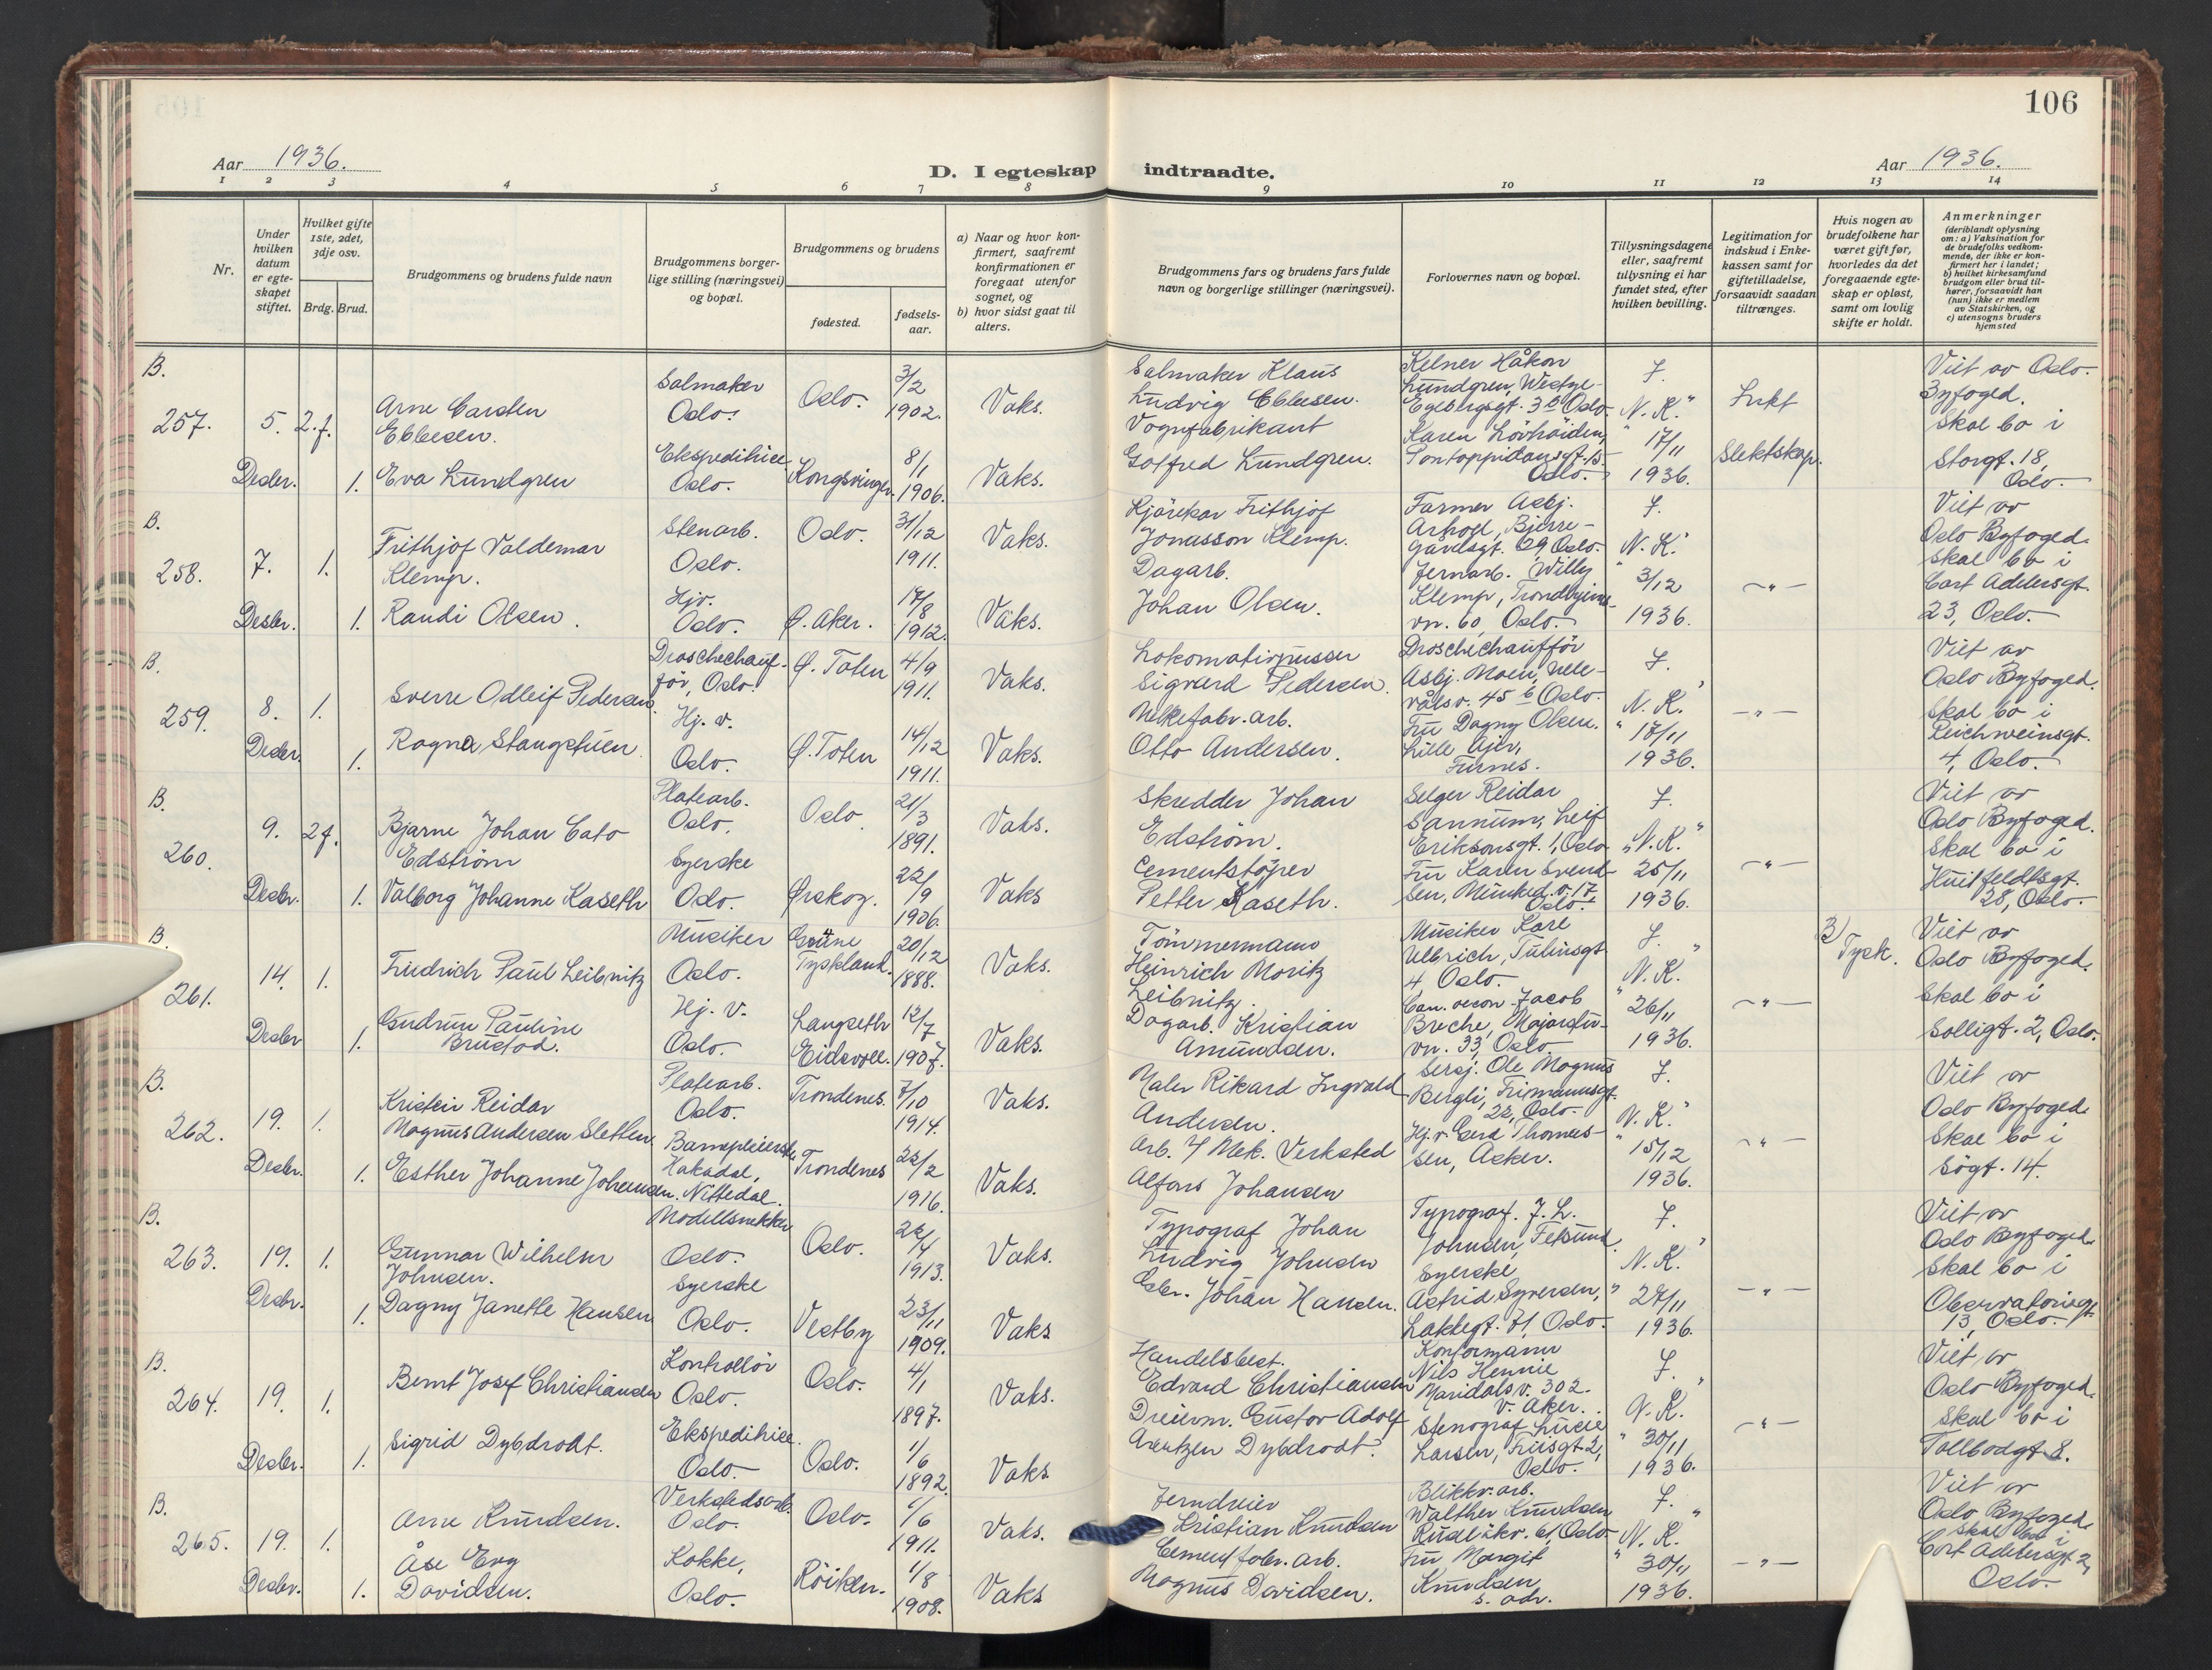 106
Aar 1936.
D. I egteskap indtraadte.
Aar 1936.
1 2 3 4 5 6 7 8 9 10 11 12 13 14
Nr.
Under hvilken datum er egteskapet stiftet.
Hvilket gifte 1ste, 2det, 3dje osv.
Brdg. Brud.
Brudgommens og brudens fulde navn
Brudgommens borgerlige stilling (næringsvei) og bopæl.
Brudgommens og brudens
fødested.
fødselsaar.
a) Naar og hvor konfirmert, saafremt konfirmationen er foregaat utenfor sognet, og
b) hvor sidst gaat til alters.
Brudgommens fars og brudens fars fulde navn og borgerlige stillinger (næringsvei).
Forlovernes navn og bopæl.
Tillysningsdagene eller, saafremt tillysning ei har fundet sted, efter hvilken bevilling.
Legitimation for indskud i Enkekassen samt for giftetilladelse, forsaavidt saadan tiltrænges.
Hvis nogen av brudefolkene har været gift før, hvorledes da det foregaaende egteskap er opløst, samt om lovlig skifte er holdt.
Anmerkninger
(deriblandt oplysning om: a) Vaksination for de brudefolks vedkommende, der ikke er konfirmert her i landet;
b) hvilket kirkesamfund brudgom eller brud tilhører, forsaavidt han (hun) ikke er medlem av Statskirken, og
c) utensogns bruders hjemsted
B.
257.
5.
Desbr.
2.f.
1.
Arne Carsten
Ebbesen.
Eva Lundgren
Salmaker
Oslo.
Ekspeditrice
Oslo.
Oslo.
Kongsvinger.
3/2
1902.
8/1
1906.
Vaks.
Vaks.
Salmaker Klaus
Ludvig Ebbesen.
Vognfabrikant
Gotfred Lundgren.
Kelner Håkon
Lundgren, Westye-
Egebergsgt. 3 b Oslo.
Karen Lövhöiden,
Pontoppidansgt. 15
Oslo.
J.
N. K."
17/11
1936.
Inkt
Slektskap.
Viet av Oslo
Byfoged.
Skal bo i
Storgt. 18,
Oslo.
B.
258.
7.
Desbr.
1.
1.
Frithjof Valdemar
Klemp.
Randi Olsen.
Stenarb.
Oslo.
Hjv.
Oslo.
Oslo.
Ø. Aker.
31/12
1911.
17/8
1912.
Vaks.
Vaks.
Kjörekar Frithjof
Jonasson Klemp.
Dagarb.
Johan Olsen.
Farmer Asbj.
Arhoff, Bjerre-
gårdsgt. 69, Oslo.
Jernarb. Willy
Klemp, Trondhjems-
vn. 60, Oslo.
J.
N. K."
3/12
1936.
-"-
Viet av
Oslo Byfoged.
Skal bo i
Cort Adelersgt.
23, Oslo.
B.
259.
8.
Desbr.
1.
1.
Sverre Odleif Pedersen.
Ragna Stangstuen
Droschechauf-
för, Oslo.
Hj. v.
Oslo.
Ø. Toten
Ø. Toten
4/9
1911.
14/12
1911.
Vaks.
Vaks.
Lokomativpusser
Sigvard Pedersen.
Melkefabr. arb.
Otto Andersen.
Droschechaufför
Asbj. Moen, Uele-
vålsv. 45 b Oslo.
Fru Dagny Olsen.
Lille Ajer,
Furnes.
J.
N. K."
17/11
1936.
-"-
Viet av
Oslo Byfoged.
Skal bo i
Reichweinsgt.
4, Oslo.
B.
260.
9.
Desbr.
2f.
1.
Bjarne Johan Cato
Edström
Valborg Johanne Kaseth
Platearb.
Oslo.
Syerske
Oslo.
Oslo.
Ørskog.
21/3
1891.
22/9
1906.
Vaks.
Vaks
Skredder Johan
Edström.
Cementstöper
Petter Kaseth.
Selger Reidar
Sannum, Leif
Eriksonsgt. 1, Oslo
Fru Karen Svend-
sen, Munked. v. 17
Oslo.
J.
"N. K."
25/11
1936.
-"-
Viet av
Oslo Byfoged.
Skal bo i
Huitfeldtsgt.
28, Oslo.
B.
261.
14.
Desbr
1.
1.
Friedrich Paul Leibnitz
Gudrun Pauline
Brustad.
Musiker
Oslo.
Hj. v.
Oslo.
Tyskland.
Langseth
Eidsvoll.
20/12
1888.
12/7
1907.
Vaks.
Vaks.
Tömmermann
Heinrich Moritz
Leibnitz.
Dagarb. Kristian
Amundsen.
Musiker Karl
Ulbrich, Tulinsgt
4, Oslo.
Can. oecon. Jacob
Breche, Majorstu-
vn. 33, Oslo
J.
N. K."
26/11
1936.
-"-
3)
Tysk.
Viet av
Oslo Byfoged.
Skal bo i
Solligt. 2, Oslo.
B.
262.
19.
Desbr.
1.
1.
Kristen Reidar
Magnus Andersen Sletten.
Esther Johanne Johansen.
Platearb.
Oslo.
Barnepleierske
Hakadal,
Nittedal.
Trondenes.
Trondenes
7/10
1914.
22/2
1916.
Vaks.
Vaks.
Maler Rikard Ingvald
Andersen.
Arb. 7 Mek. Verksted
Alfons Johansen
Sersj. Ole Magnus
Bergli, Frimannsgt.
22, Oslo.
Hj. v. Gerd Thomas-
sen, Asker.
J.
N. K."
15/12
1936.
-"-
Viet av
Oslo Byfoged.
Skal bo i
Sögt. 14.
B.
263.
19.
Desbr.
1.
1.
Gunnar Wilhelm
Johnsen.
Dagny Janette Hansen
Modellsnekker
Oslo.
Syerske
Oslo.
Oslo.
Vestby
22/4
1913.
23/11
1909.
Vaks.
Vaks
Typograf Johan
Ludvig Johnsen
Gbr. Johan Hansen.
Typograf. J. L.
Johnsen, Fetsund.
Syerske
Astrid Syversen,
Lakkegt. 71, Oslo.
J.
N. K."
27/11
1936.
-"-
Viet av
Oslo Byfoged.
Skal bo i
Observatoriegt.
13, Oslo.
B.
264.
19.
Desbr.
1.
1.
Bernt Josef Christiansen
Sigrid Dybdrodt.
Kontrollör
Oslo.
Ekspeditrice.
Oslo.
Oslo.
Oslo.
4/1
1897.
1/6
1892.
Vaks.
Vaks.
Handelsbest.
Edvard Christiansen
Dreierm. Gustav Adolf
Arentzen Dybdrodt.
Kontormann
Nils Hennie
Maridalsv. 302.
V. Aker.
Stenograf Lucie
Larsen, Friisgt. 2,
Oslo.
J.
N. K."
30/11
1936.
-"-
Viet av
Oslo Byfoged.
Skal bo i
Tollbodgt 8.
B.
265.
19.
Desbr.
1.
1.
Arne Knudsen.
Åse Evy
Davidsen.
Verkstedsarb.
Oslo.
Kokke,
Oslo.
Oslo.
Röiken.
1/6
1911.
1/8
1908.
Vaks.
Vaks
Jerndreier
Kristian Knudsen
Cementfabr. arb.
Magnus Davidsen.
Blikkv. arb.
Walther Knudsen
Rudl økv. 61, Oslo
Fru Margit
Knudsen
s. adr.
J.
N. K."
30/11
1936.
-"-
Viet av
Oslo Byfoged.
Skal bo i
Cort Adelersgt 2,
Oslo.